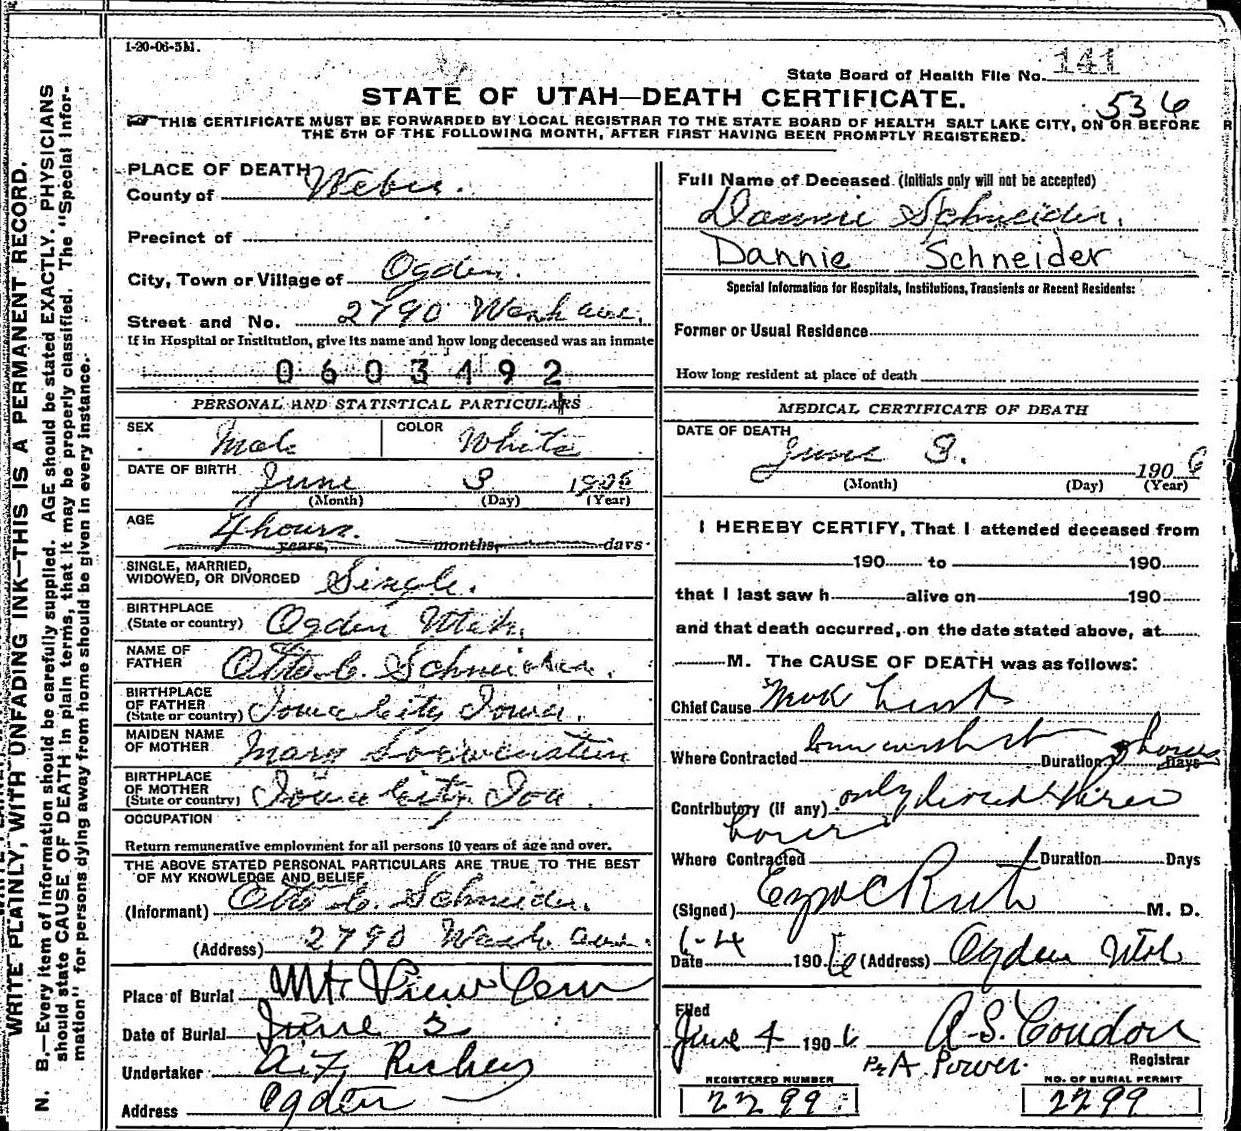 1-20-06-5M.
State Board of Health File No. 141
STATE OF UTAH—DEATH CERTIFICATE.
536
THIS CERTIFICATE MUST BE FORWARDED BY LOCAL REGISTRAR TO THE STATE BOARD OF HEALTH SALT LAKE CITY, ON OR BEFORE
THE 5TH OF THE FOLLOWING MONTH, AFTER FIRST HAVING BEEN PROMPTLY REGISTERED.
WRITE PLAINLY, WITH UNFADING INK—THIS IS A PERMANENT RECORD.
N. B.—Every item of information should be carefully supplied. AGE should be stated EXACTLY. PHYSICIANS
should state CAUSE OF DEATH in plain terms, that it may be properly classified. The "Special Infor-
mation" for persons dying away from home should be given in every instance.
PLACE OF DEATH
County of Weber.
Precinct of
City, Town or Village of Ogden.
Street and No. 2790 Wash ave.
If in Hospital or Institution, give its name and how long deceased was an inmate
0603492
PERSONAL AND STATISTICAL PARTICULARS
SEX Male COLOR White
DATE OF BIRTH June 3 1906
(Month) (Day) (Year)
AGE 4 hours.
years, months, days
SINGLE, MARRIED,
WIDOWED, OR DIVORCED Single.
BIRTHPLACE
(State or country) Ogden Utah.
NAME OF
FATHER Otto C. Schneider.
BIRTHPLACE
OF FATHER
(State or country) Iowa City Iowa.
MAIDEN NAME
OF MOTHER Mary Loewenstein
BIRTHPLACE
OF MOTHER
(State or country) Iowa City Ioa.
OCCUPATION
Return remunerative employment for all persons 10 years of age and over.
THE ABOVE STATED PERSONAL PARTICULARS ARE TRUE TO THE BEST
OF MY KNOWLEDGE AND BELIEF
(Informant) Otto C. Schneider.
(Address) 2790 Wash ave.
Place of Burial Mt View Cem
Date of Burial June 5
Undertaker Richey
Address Ogden
Full Name of Deceased (Initials only will not be accepted)
Dannie Schneider.
Dannie Schneider
Special Information for Hospitals, Institutions, Transients or Recent Residents:
Former or Usual Residence
How long resident at place of death
MEDICAL CERTIFICATE OF DEATH
DATE OF DEATH
June 3. 1906
(Month) (Day) (Year)
I HEREBY CERTIFY, That I attended deceased from
190 to 190
that I last saw h alive on 190
and that death occurred, on the date stated above, at
M. The CAUSE OF DEATH was as follows:
Chief Cause
Where Contracted born with it Duration 3 hours Days
Contributory (if any) only lived three
hours
Where Contracted Duration Days
(Signed) Ezra C Rich M. D.
Date 6-4 1906 (Address) Ogden Utah
Filed
June 4 1906 A. S. Condon
Registrar
Pr A. Power.
REGISTERED NUMBER
2299
NO. OF BURIAL PERMIT
2299